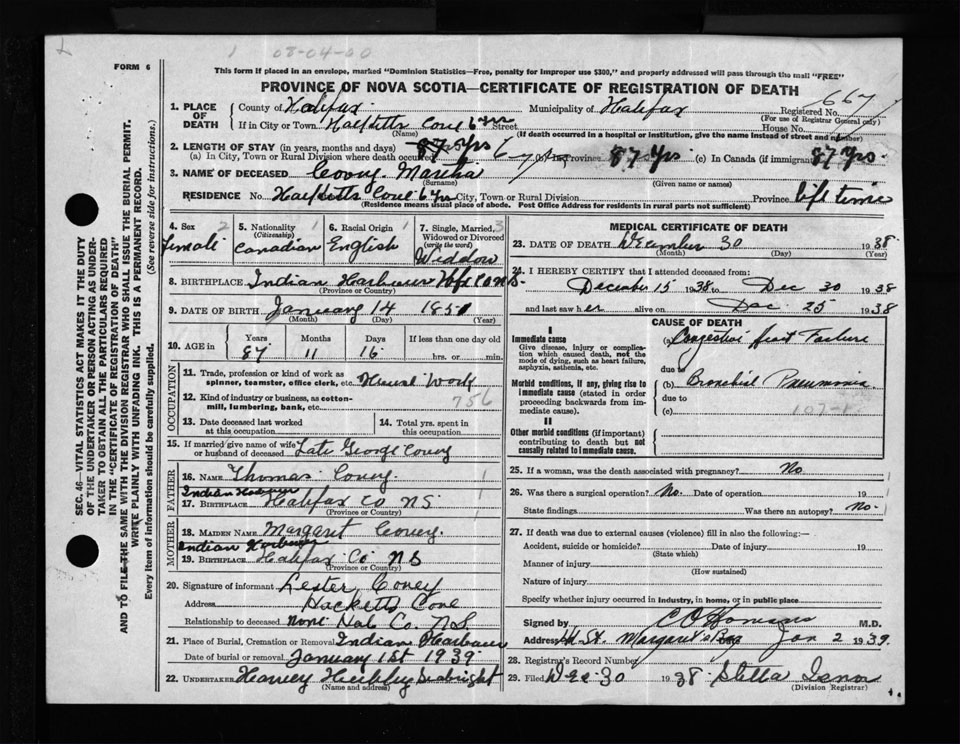 1 08-04-00
FORM 6
This form if placed in an envelope, marked "Dominion Statistics—Free, penalty for improper use $300," and properly addressed will pass through the mail "FREE"
PROVINCE OF NOVA SCOTIA—CERTIFICATE OF REGISTRATION OF DEATH
SEC. 46—VITAL STATISTICS ACT MAKES IT THE DUTY
OF THE UNDERTAKER OR PERSON ACTING AS UNDER-
TAKER TO OBTAIN ALL THE PARTICULARS REQUIRED
IN THE "CERTIFICATE OF REGISTRATION OF DEATH"
AND TO FILE THE SAME WITH THE DIVISION REGISTRAR WHO SHALL ISSUE THE BURIAL PERMIT.
WRITE PLAINLY WITH UNFADING INK. THIS IS A PERMANENT RECORD.
Every item of information should be carefully supplied. (See reverse side for instructions.)
1. PLACE OF DEATH County of Halifax Municipality of Halifax Registered No. 667
(For use of Registrar General only)
If in City or Town Hacketts Cove 6 yrs Street House No.
(Name) (If death occurred in a hospital or institution, give the name instead of street and number)
2. LENGTH OF STAY (in years, months and days)
(a) In City, Town or Rural Division where death occurred 6 yrs (b) In Province 87 yrs (c) In Canada (if immigrant) 87 yrs.
3. NAME OF DECEASED Covey Martha
(Surname) (Given name or names)
RESIDENCE No. Hacketts Cove 6 yrs City, Town or Rural Division Province life time
(Residence means usual place of abode. Post Office Address for residents in rural parts not sufficient)
4. Sex 2 Female
5. Nationality 1 (Citizenship) Canadian
6. Racial Origin 1 English
7. Single, Married, Widowed or Divorced (write the word) 3 Widdow
8. BIRTHPLACE Indian Harbour Hfx Co N.S.
(Province or Country)
9. DATE OF BIRTH January 14 1851
(Month) (Day) (Year)
10. AGE in Years 87 Months 11 Days 16 If less than one day old hrs. or min.
OCCUPATION
11. Trade, profession or kind of work as spinner, teamster, office clerk, etc. House Work
12. Kind of industry or business, as cotton-mill, lumbering, bank, etc. 756
13. Date deceased last worked at this occupation
14. Total yrs. spent in this occupation
15. If married give name of wife or husband of deceased Late George Covey
FATHER
16. Name Thomas Covey
Indian Harbour
17. Birthplace Halifax Co NS
(Province or Country)
MOTHER
18. Maiden Name Margaret Covey
Indian Harbour
19. Birthplace Halifax Co NS
(Province or Country)
20. Signature of informant Lester Covey
Address Hacketts Cove
Relationship to deceased none Co. N.S.
21. Place of Burial, Cremation or Removal Indian Harbour
Date of burial or removal January 1st 1939
22. Undertaker Harvey Hubley Seabright
(Name and address)
MEDICAL CERTIFICATE OF DEATH
23. DATE OF DEATH December 30 1938
(Month) (Day) (Year)
24. I HEREBY CERTIFY that I attended deceased from:
December 15 1938 to Dec 30 1938
and last saw her alive on Dec 25 1938
CAUSE OF DEATH
I
Immediate cause
Give disease, injury or complication which caused death, not the mode of dying, such as heart failure, asphyxia, asthenia, etc.
(a) Congestive Heart Failure
due to
Morbid conditions, if any, giving rise to immediate cause (stated in order proceeding backwards from immediate cause).
(b) Bronchial Pneumonia
due to
(c) 107-1
II
Other morbid conditions (if important) contributing to death but not causally related to immediate cause.
25. If a woman, was the death associated with pregnancy? No
26. Was there a surgical operation? No. Date of operation 19
State findings Was there an autopsy? No.
27. If death was due to external causes (violence) fill in also the following:—
Accident, suicide or homicide? Date of injury 19
(State which)
Manner of injury
(How sustained)
Nature of injury
Specify whether injury occurred in industry, in home, or in public place
Signed by M.D.
Address St. Margaret's Bay Jan 2 1939.
28. Registrar's Record Number
29. Filed Dec 30 1938 Stella
(Division Registrar)